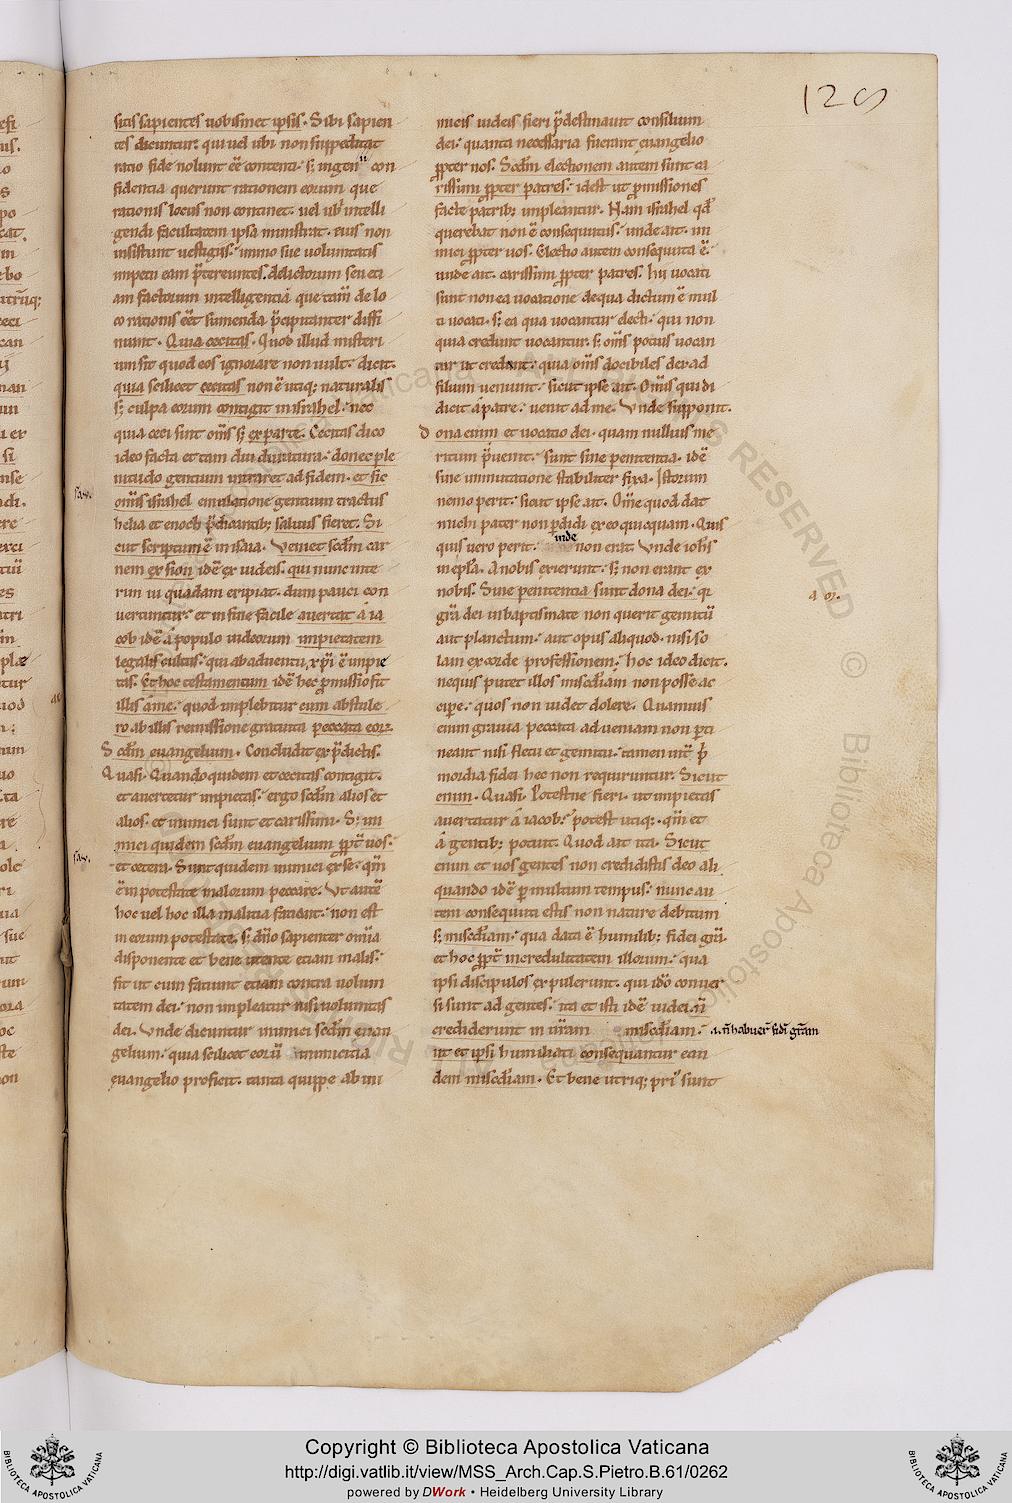 129
sitis sapientes uobismet ipsis. Sibi sapien
tes dicuntur: qui uel ubi non suppeditat
ratio fide nolunt eē contenti. s; ingenii con
fidentia querunt rationem eorum que
rationis locus non continet. uel ubi intelli
gendi facultatem ipsa ministrat. eius non
insistunt uestigiis: immo sue uoluntatis
impetu eam p̄tereuntes. delictorum seu eti
am factorum intelligentiā que tam̄ de lo
co rationis eēt sumenda p̄cipitanter diffi
niunt. Quia cecitas. Quod illud misteri
um sit quod eos ignorare non uult: dicit.
quia scilicet cecitas non ē utiq; naturalis
s; culpa eorum contigit in israhel: nec
quia ceci sunt om̄s s; ex parte. Cecitas dico
ideo facta et tam diu duritura: donec ple
nitudo gentium intraret ad fidem. et sic
om̄is israhel emulatione gentium tractus
helia et enoch p̄dicantib; saluus fieret. Si
cut scriptum ē in isaia. Veniet sc̄dm car
nem ex sion idē ex iudeis. qui nunc inte
rim ui quadam eripiat. dum pauci con
uertuntur: et in fine facile auertat á ia
cob idē á populo iudeorum impietatem
legalis cultus: qui ab aduentu xp̄i ē impie
tas. Et hoc testamentum idē hec p̄missio fit
illis á me: quod implebitur cum abstule
ro ab illis remissione gratuita peccata eoꝝ.
Sc̄dm euangelium. Concludit ex p̄dictis.
Quasi. Quandoquidem et cecitas contigit.
et auertetur impietas: ergo sc̄dm alios et
alios. et inimici sunt et carissimi. S; ini
mici quidem sc̄dm euangelium ꝓpt̄ uos:
et cetera. Sunt quidem inimici ex se: qm̄
ē in potestate malorum peccare. Vt autē
hoc uel hoc illa malitia faciant: non est
in eorum potestate. s; dn̄o sapienter omīa
disponente et bene utente etiam malis:
fit ut cum faciunt etiam contra uolun
tatem dei: non impleatur nisi uoluntas
dei. Vnde dicuntur inimici sc̄dm euan
gelium: quia scilicet eorū inimicitia
euangelio proficit. tanta quippe ab ini
micis iudeis fieri p̄destinauit consilium
dei: quanta necessaria fuerant euangelio
ꝓpter nos. Sc̄dm electionem autem sunt ca
rissimi ꝓpter patres: idest ut p̄missiones
facte patrib; impleantur. Nam israhel qd̄
querebat non ē consequutus: unde ait. ini
mici ꝓpter uos. Electio autem consequuta ē.
unde ait. carissimi ꝓpter patres. hii uocati
sunt non ea uocatione de qua dictum ē mul
ti uocati. s; ea qua uocantur electi. qui non
quia credunt uocantur. s; om̄s potius uocan
tur ut credant: quia om̄s docibiles dei ad
filium ueniunt: sicut ipse ait. Om̄is qui di
dicit á patre: uenit ad me. Vnde supponit.
Dona enim et uocatio dei. quam nullius me
ritum p̄uenit: sunt sine penitentia. idē
sine immutatione stabiliter fixa. Istorum
nemo perit: sicut ipse ait. Om̄e quod dat
michi pater non ꝑdidi ex eo quicquam. Quis
quis uero perit: inde non erit. Vnde ioh̄s
in epl̄a. A nobis exierunt: s; non erant ex
nobis. Sine penitentia sunt dona dei: q̄i
gr̄a dei in baptismate non querit gemitū
aut planctum: aut opus aliquod. nisi so
lam ex corde professionem: hoc ideo dicit.
nequis putet illos misc̄diam non posse ac
cipe: quos non uidet dolere. Quamuis
enim grauia peccata ad ueniam non ꝑti
neant nisi fletu et gemitu: tamen int̄ p̄
mordia fidei hec non requiruntur. Sicut
enim. Quasi. Potestne fieri. ut impietas
auertatur á iacob: potest utiq;. qm̄ et
á gentib; potuit. Quod ait ita. Sicut
enim et uos gentes non credidistis deo ali
quando idē ꝑ multum tempus: nunc au
tem consequuti estis non nature debitum
s; misc̄diam: qua data ē humilib; fidei gr̄a.
et hoc ꝓpt̄ incredulitatem illorum: qua
ipsi discipulos expulerunt. qui idō conuer
si sunt ad gentes: ita et isti idē iudei n̄
crediderunt in ur̄am misc̄diam: .i. n̄ habuer̄ fidī gr̄am
ut et ipsi humiliati consequantur ean
dem misc̄diam. Et bene utriq; pri' sunt
Copyright © Biblioteca Apostolica Vaticana
http://digi.vatlib.it/view/MSS_Arch.Cap.S.Pietro.B.61/0262
powered by DWork • Heidelberg University Library